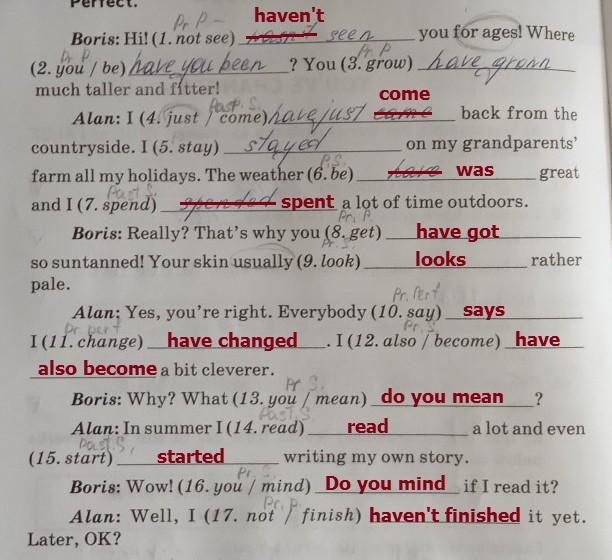 Perfect.
Pr. P haven't
Boris: Hi! (1. not see) hasn't seen you for ages! Where
Pr. P Pr. P
(2. you / be) have you been ? You (3. grow) have grown
much taller and fitter!
Past. S. come
Alan: I (4. just / come) have just came back from the
countryside. I (5. stay) stayed on my grandparents'
P.S.
farm all my holidays. The weather (6. be) have was great
Past S.
and I (7. spend) spended spent a lot of time outdoors.
Pr. P.
Boris: Really? That's why you (8. get) have got
Pr. S.
so suntanned! Your skin usually (9. look) looks rather
pale.
Pr. Perf
Alan: Yes, you're right. Everybody (10. say) says
Pr. perf Pr. S.
I (11. change) have changed . I (12. also / become) have
also become a bit cleverer.
Pr S.
Boris: Why? What (13. you / mean) do you mean ?
Past. S.
Alan: In summer I (14. read) read a lot and even
Past. S,
(15. start) started writing my own story.
Pr. S.
Boris: Wow! (16. you / mind) Do you mind if I read it?
Pr. P.
Alan: Well, I (17. not / finish) haven't finished it yet.
Later, OK?